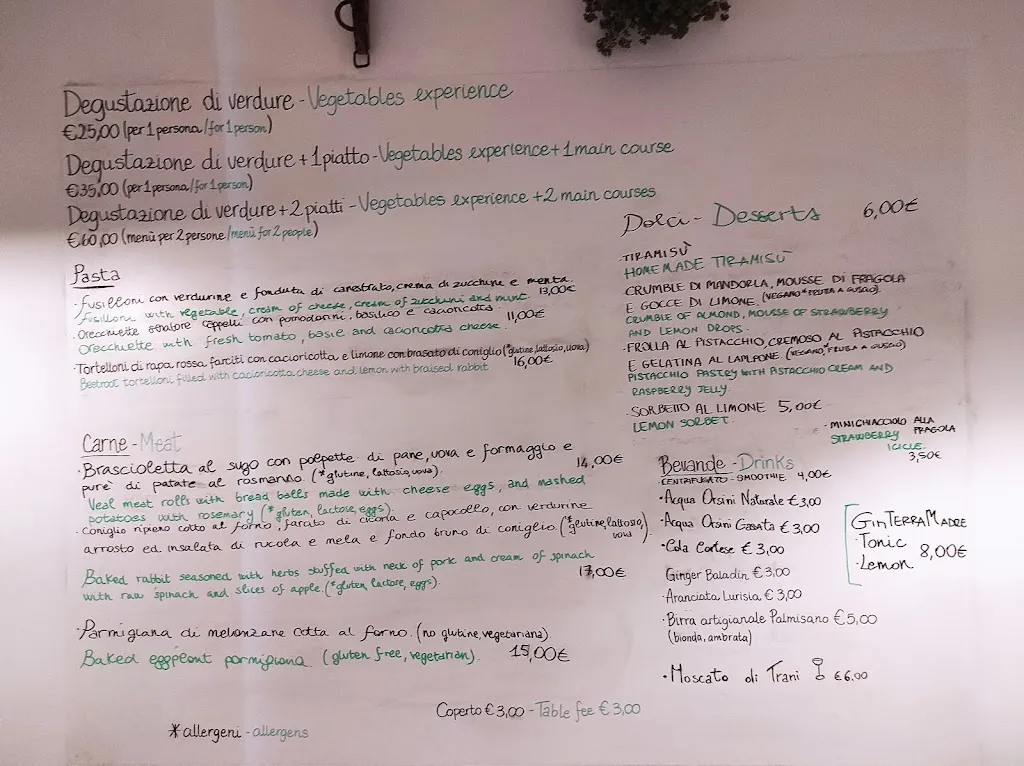 Degustazione di verdure - Vegetables experience
€25,00 (per 1 persona/for 1 person)
Degustazione di verdure + 1 piatto - Vegetables experience + 1 main course
€35,00 (per 1 persona/for 1 person)
Degustazione di verdure + 2 piatti - Vegetables experience + 2 main courses
€60,00 (menù per 2 persone/menù for 2 people)
Pasta
· Fusilloni con verdurine e fonduta di canestrato, crema di zucchine e menta
13,00€
Fusilloni with vegetable, cream of cheese, cream of zucchini and mint
· Orecchiette cappelli con pomodorini, basilico e cacioricotta
11,00€
Orecchiette with fresh tomato, basie and cacioricotta cheese.
· Tortelloni di rapa rossa farciti con cacioricotta e limone con brasato di coniglio (*glutine, lattosio, uova)
16,00€
Beetroot tortelloni filled with cacioricotta cheese and lemon with braised rabbit
Carne - Meat
· Brascioletta al sugo con polpette di pane, uova e formaggio e
purè di patate al rosmarino. (*glutine, lattosio, uova).
14,00€
Veal meat rolls with bread balls made with cheese eggs, and mashed
potatoes with rosemary (*gluten, lactose, eggs).
· Coniglio ripieno cotto al forno, farcito di cicoria e capocollo, con verdurine
arrosto ed insalata di rucola e mela e fondo bruno di coniglio. (*glutine, lattosio,
uova)
Baked rabbit seasoned with herbs stuffed with neck of pork and cream of spinach
with raw spinach and slices of apple. (*gluten, lactore, eggs).
17,00€
· Parmigiana di melanzane cotta al forno. (no glutine, vegetariana)
Baked eggpeant parmigiana (gluten free, vegetarian). 15,00€
Dolci - Desserts 6,00€
· TIRAMISÙ
HOMEMADE TIRAMISÙ
CRUMBLE DI MANDORLA, MOUSSE DI FRAGOLA
E GOCCE DI LIMONE. (VEGANO *FRUTTA A GUSCIO).
CRUMBLE OF ALMOND, MOUSSE OF STRAWBERRY
AND LEMON DROPS.
· FROLLA AL PISTACCHIO, CREMOSO AL PISTACCHIO
E GELATINA AL LAMPONE. (VEGANO, FRUTTA A GUSCIO)
PISTACCHIO PASTRY WITH PISTACCHIO CREAM AND
RASPBERRY JELLY.
· SORBETTO AL LIMONE 5,00€
LEMON SORBET
· MINICHIACCIOLO ALLA
FRAGOLA
STRAWBERRY
ICICLE.
3,50€
Bevande - Drinks
CENTRIFUGATO - SMOOTHIE 4,00€
· Acqua Orsini Naturale €3,00
· Acqua Orsini Gasata €3,00
· Cola Cortese €3,00
Ginger Baladin €3,00
· Aranciata Lurisia €3,00
· Birra artigianale Palmisano €5,00
(bionda, ambrata)
· Moscato di Trani €6,00
GinTERRAMADRE
· Tonic
· Lemon
8,00€
Coperto €3,00 - Table fee €3,00
* allergeni - allergens